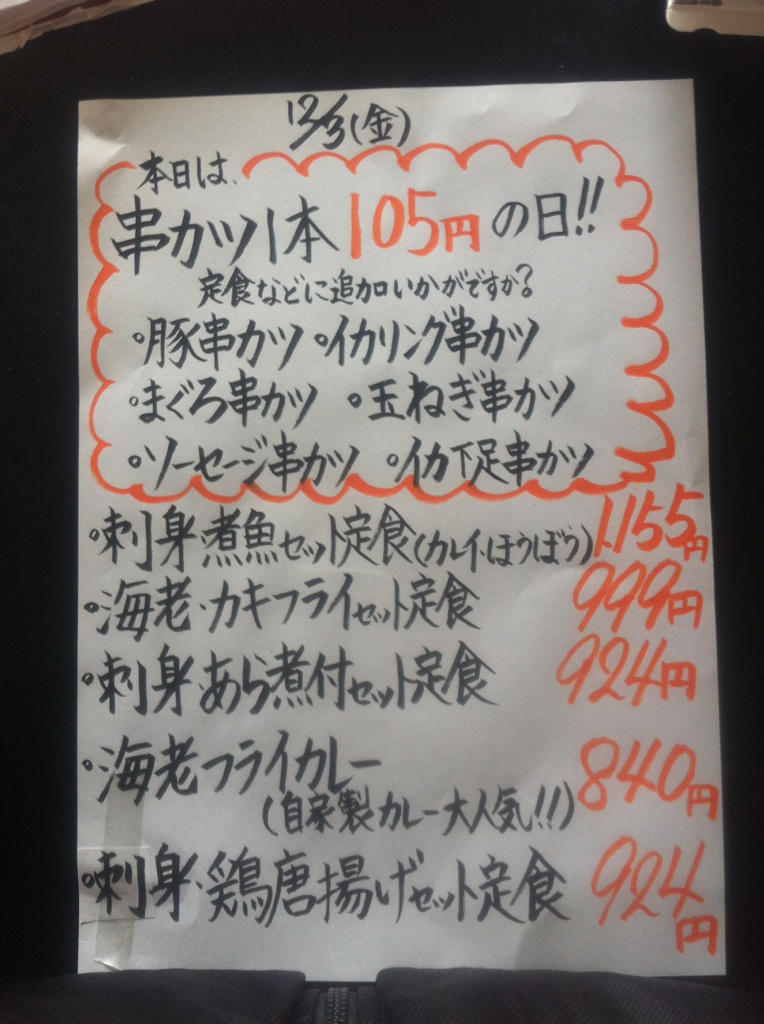 12/3(金)
本日は、
串カツ1本105円の日!!
定食などに追加いかがですか?
◦豚串カツ ◦イカリング串カツ
◦まぐろ串カツ ◦玉ねぎ串カツ
◦ソーセージ串カツ ◦イカ下足串カツ
◦刺身煮魚セット定食(カレイ・ほうぼう) 1,155円
◦海老・カキフライセット定食 999円
◦刺身あら煮付セット定食 924円
◦海老フライカレー 840円
(自家製カレー大人気!!)
◦刺身・鶏唐揚げセット定食 924円